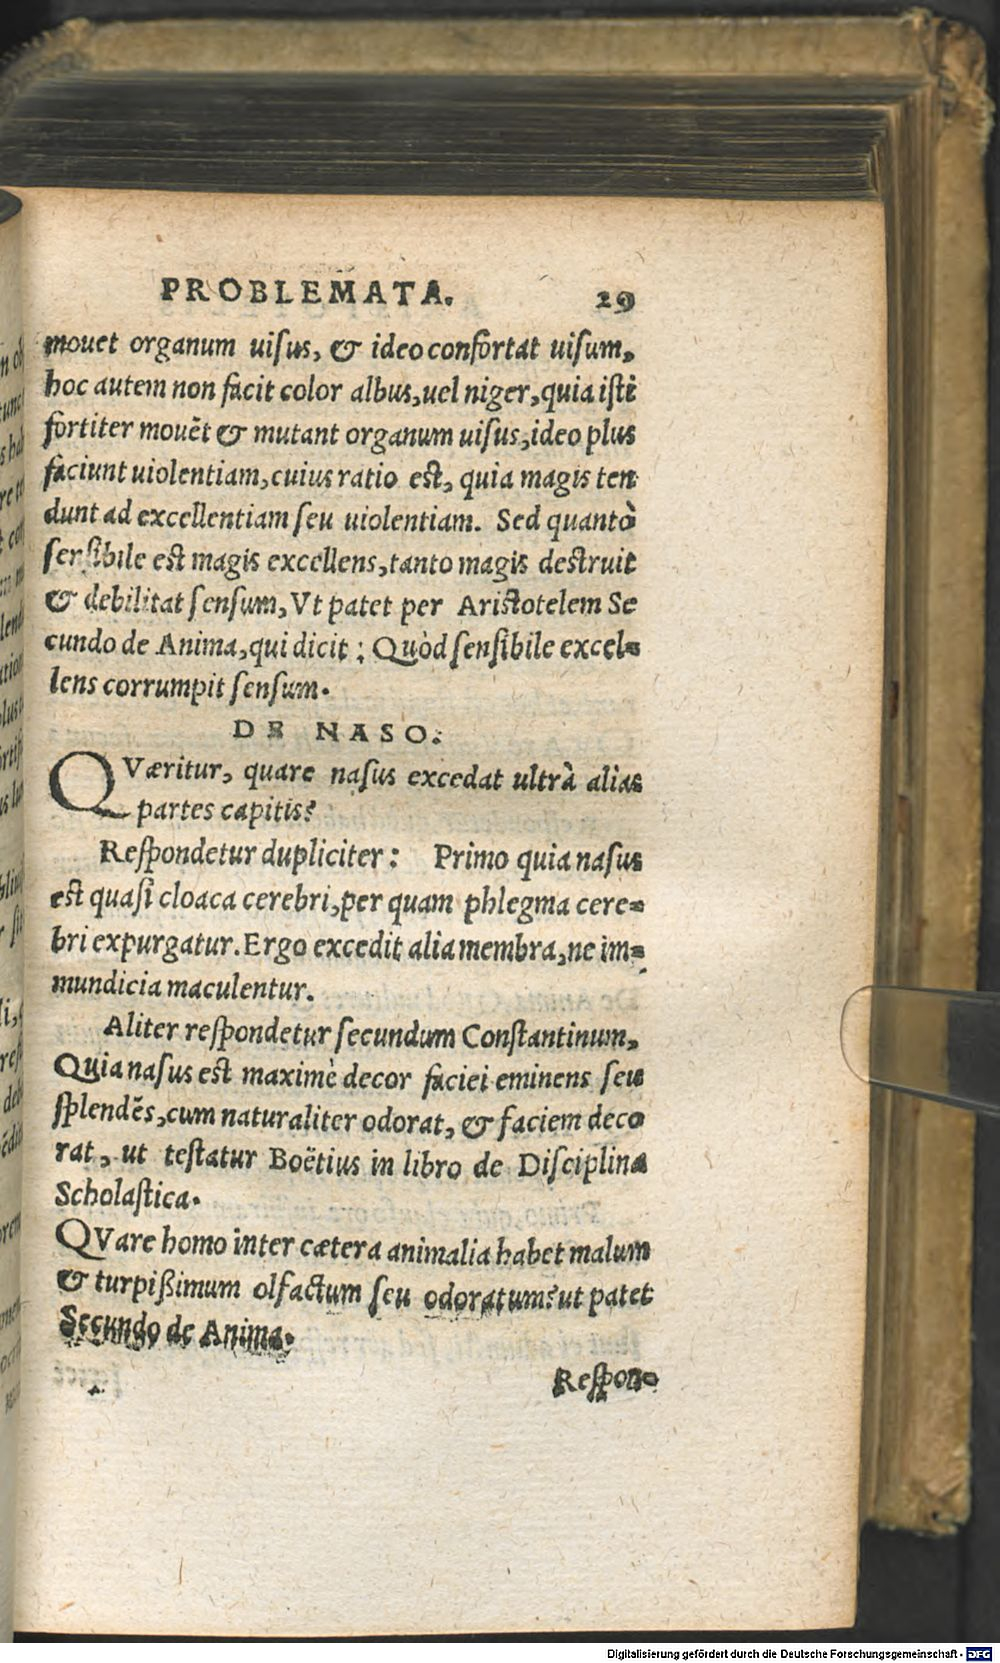 PROBLEMATA. 29
mouet organum uiſus, & ideo confortat uiſum,
hoc autem non facit color albus, uel niger, quia iſti
fortiter mouēt & mutant organum uiſus, ideo plus
faciunt uiolentiam, cuius ratio est, quia magis ten
dunt ad excellentiam ſeu uiolentiam. Sed quantò
ſenſibile est magis excellens, tanto magis destruit
& debilitat ſenſum, Vt patet per Aristotelem Se
cundo de Anima, qui dicit: Quòd ſenſibile excel=
lens corrumpit ſenſum.
DE NASO.
QVæritur, quare naſus excedat ultrà alias
partes capitis?
Reſpondetur dupliciter: Primo quia naſus
est quaſi cloaca cerebri, per quam phlegma cere=
bri expurgatur. Ergo excedit alia membra, ne im=
mundicia maculentur.
Aliter reſpondetur ſecundum Conſtantinum,
Quia naſus est maximè decor faciei eminens ſeu
ſplendēs, cum naturaliter odorat, & faciem deco
rat, ut teſtatur Boëtius in libro de Diſciplina
Scholaſtica.
QVare homo inter cætera animalia habet malum
& turpißimum olfactum ſeu odoratum? ut patet
Secundo de Anima.
Reſpon=
Digitalisierung gefördert durch die Deutsche Forschungsgemeinschaft - DFG